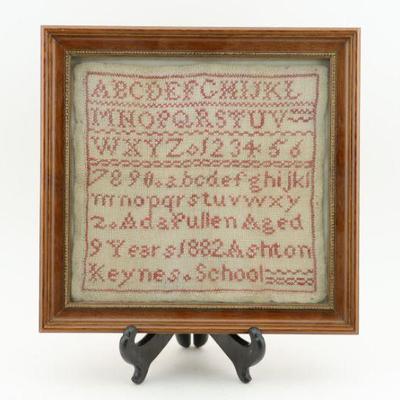 ABCDEFGHIJKL
MNOPQRSTUV
WXYZ.123456
7890.abcdefghijkl
mnopqrstuvwxy
z.Ada Pullen Aged
9 Years 1882 Ashton
Keynes.School